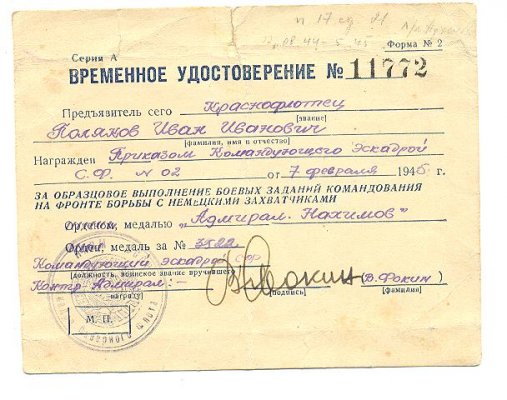 п. 17 ст
Серия А
Форма № 2
ВРЕМЕННОЕ УДОСТОВЕРЕНИЕ № 11772
Предъявитель сего Краснофлотец
(звание)
Поляков Иван Иванович
(фамилия, имя и отчество)
Награжден Приказом Командующего Эскадрой
С.Ф. № 02 от 7 февраля 1945 г.
ЗА ОБРАЗЦОВОЕ ВЫПОЛНЕНИЕ БОЕВЫХ ЗАДАНИЙ КОМАНДОВАНИЯ
НА ФРОНТЕ БОРЬБЫ С НЕМЕЦКИМИ ЗАХВАТЧИКАМИ
Орденом, медалью „Адмирал. Нахимов"
Орден, медаль за № 3522
Командующий эскадрой СФ
(должность, воинское звание вручившего
Контр Адмирал:- Фокин (В. Фокин)
награду) (подпись) (фамилия)
М. П.